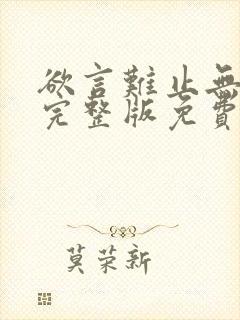 欲言難止無
完整版免費
莫荣新